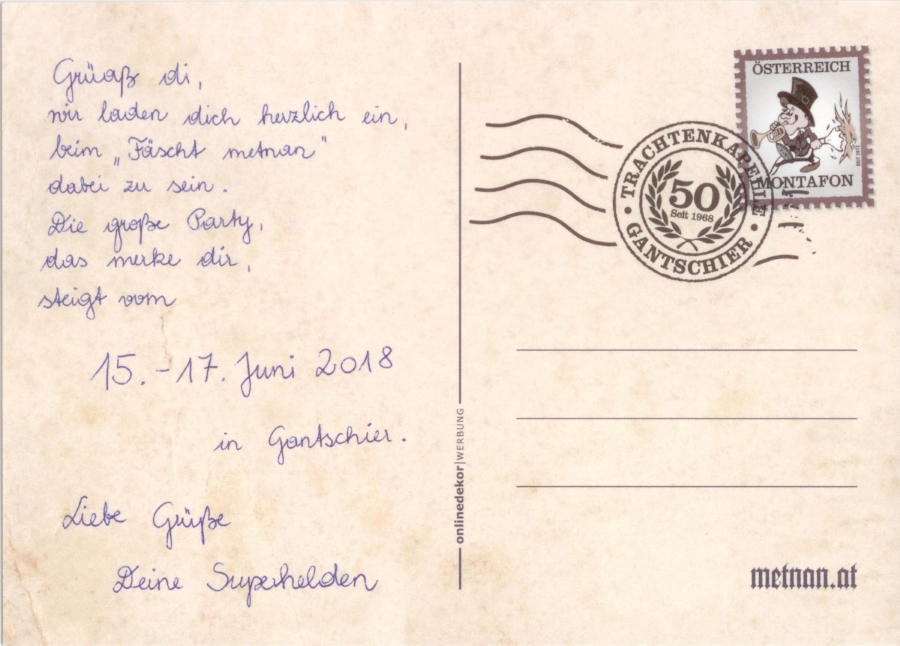 Grüaß di,
wir laden dich herzlich ein,
beim „Fäscht metnan"
dabei zu sein.
Die große Party,
das merke dir,
steigt vom
15.-17. Juni 2018
in Gantschier.
Liebe Grüße
Deine Superhelden
onlinedekor|WERBUNG
ÖSTERREICH
MONTAFON
TRACHTENKAPELLE
50
Seit 1968
GANTSCHIER
metnan.at